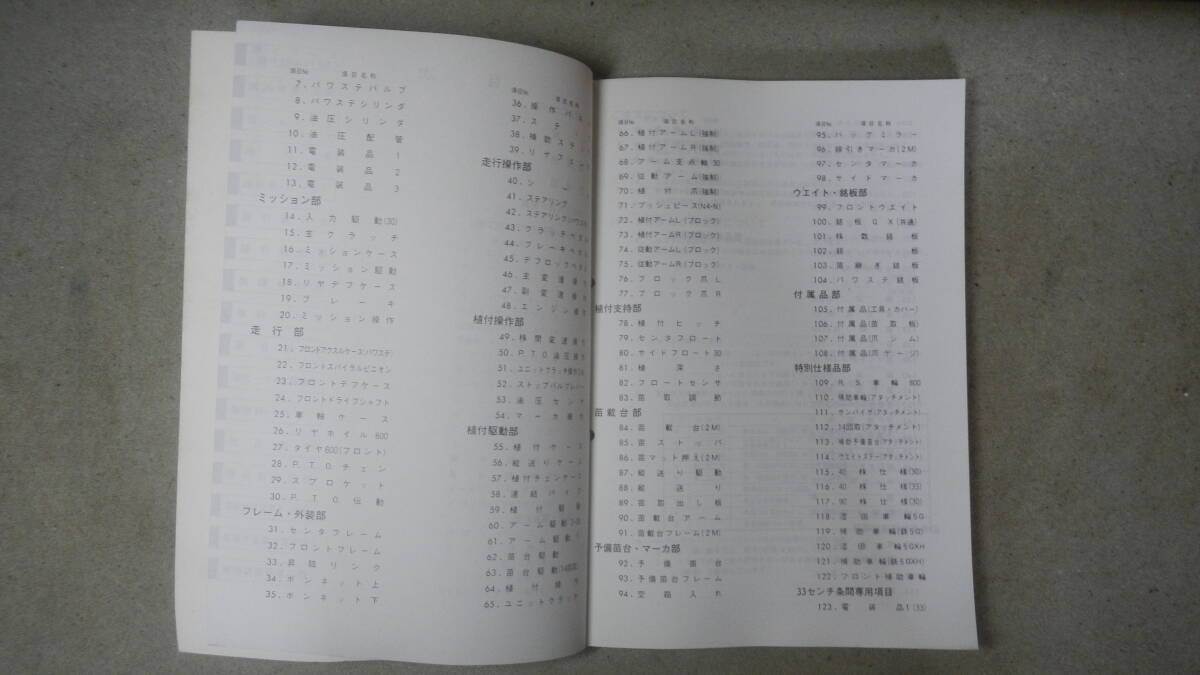 項目No. 項目名称
7．パワステバルブ
8．パワステシリンダ
9．油圧シリンダ
10．油圧配管
11．電装品1
12．電装品2
13．電装品3
ミッション部
14．入力駆動(30)
15．主クラッチ
16．ミッションケース
17．ミッション駆動
18．リヤデフケース
19．ブレーキ
20．ミッション操作
走行部
21．フロントアクスルケース(パワステ)
22．フロントスパイラルピニオン
23．フロントデフケース
24．フロントドライブシャフト
25．車輪ケース
26．リヤホイル800
27．タイヤ600(フロント)
28．P.T.O.チェン
29．スプロケット
30．P.T.O.伝動
フレーム・外装部
31．センタフレーム
32．フロントフレーム
33．昇降リンク
34．ボンネット上
35．ボンネット下
項目No. 項目名称
36．操作パネル
37．ステ
38．補助ステ
39．リヤ
走行操作部
40．シ
41．ステアリング
42．ステアリング(パワステ)
43．クラッチペダル
44．ブレーキペダル
45．デフロックペダル
46．主変速操作
47．副変速操作
48．エンジン操作
植付操作部
49．株間変速操作
50．P.T.O.油圧操作
51．ユニットクラッチ操作
52．ストップバルブレバー
53．油圧センサ
54．マーカ操作
植付駆動部
55．植付ケース
56．縦送りケース
57．植付チェンケース
58．連結パイプ
59．植付駆動
60．アーム駆動
61．アーム駆動
62．苗台駆動
63．苗台駆動
64．植付操作
65．ユニットクラッチ
項目No. 項目名称
66．植付アームL(強制)
67．植付アームR(強制)
68．アーム支点軸30
69．従動アーム(強制)
70．植付爪(強制)
71．プッシュピース(N4-N)
72．植付アームL(ブロック)
73．植付アームR(ブロック)
74．従動アームL(ブロック)
75．従動アームR(ブロック)
76．ブロック爪L
77．ブロック爪R
植付支持部
78．植付ヒッチ
79．センタフロート
80．サイドフロート30
81．植深さ
82．フロートセンサ
83．苗取調節
苗載台部
84．苗載台(2M)
85．苗ストッパ
86．苗マット押え(2M)
87．縦送り駆動
88．縦送り
89．苗取出し板
90．苗載台アーム
91．苗載台フレーム(2M)
予備苗台・マーカ部
92．予備苗台
93．予備苗台フレーム
94．空箱入れ
項目No. 項目名称
95．バックミラー
96．線引きマーカ(2M)
97．センタマーカ
98．サイドマーカ
ウエイト・銘板部
99．フロントウエイト
100．銘板GX(共通)
101．株数銘板
102．銘板
103．苗継ぎ銘板
104．パワステ銘板
付属品部
105．付属品(工具・カバー)
106．付属品(苗取板)
107．付属品(爪シム)
108．付属品(爪ゲージ)
特別仕様品部
109．RS車輪800
110．補助車輪(アタッチメント)
111．サンバイザ(アタッチメント)
112．14回取(アタッチメント)
113．補助予備苗台(アタッチメント)
114．ウエイトステー(アタッチメント)
115．40株仕様(30)
116．40株仕様(33)
117．90株仕様(30)
118．湿田車輪5G
119．補助車輪(鉄5G)
120．湿田車輪5GXH
121．補助車輪(鉄5GXH)
122．フロント補助車輪
33センチ条間専用項目
123．電装品1(33)